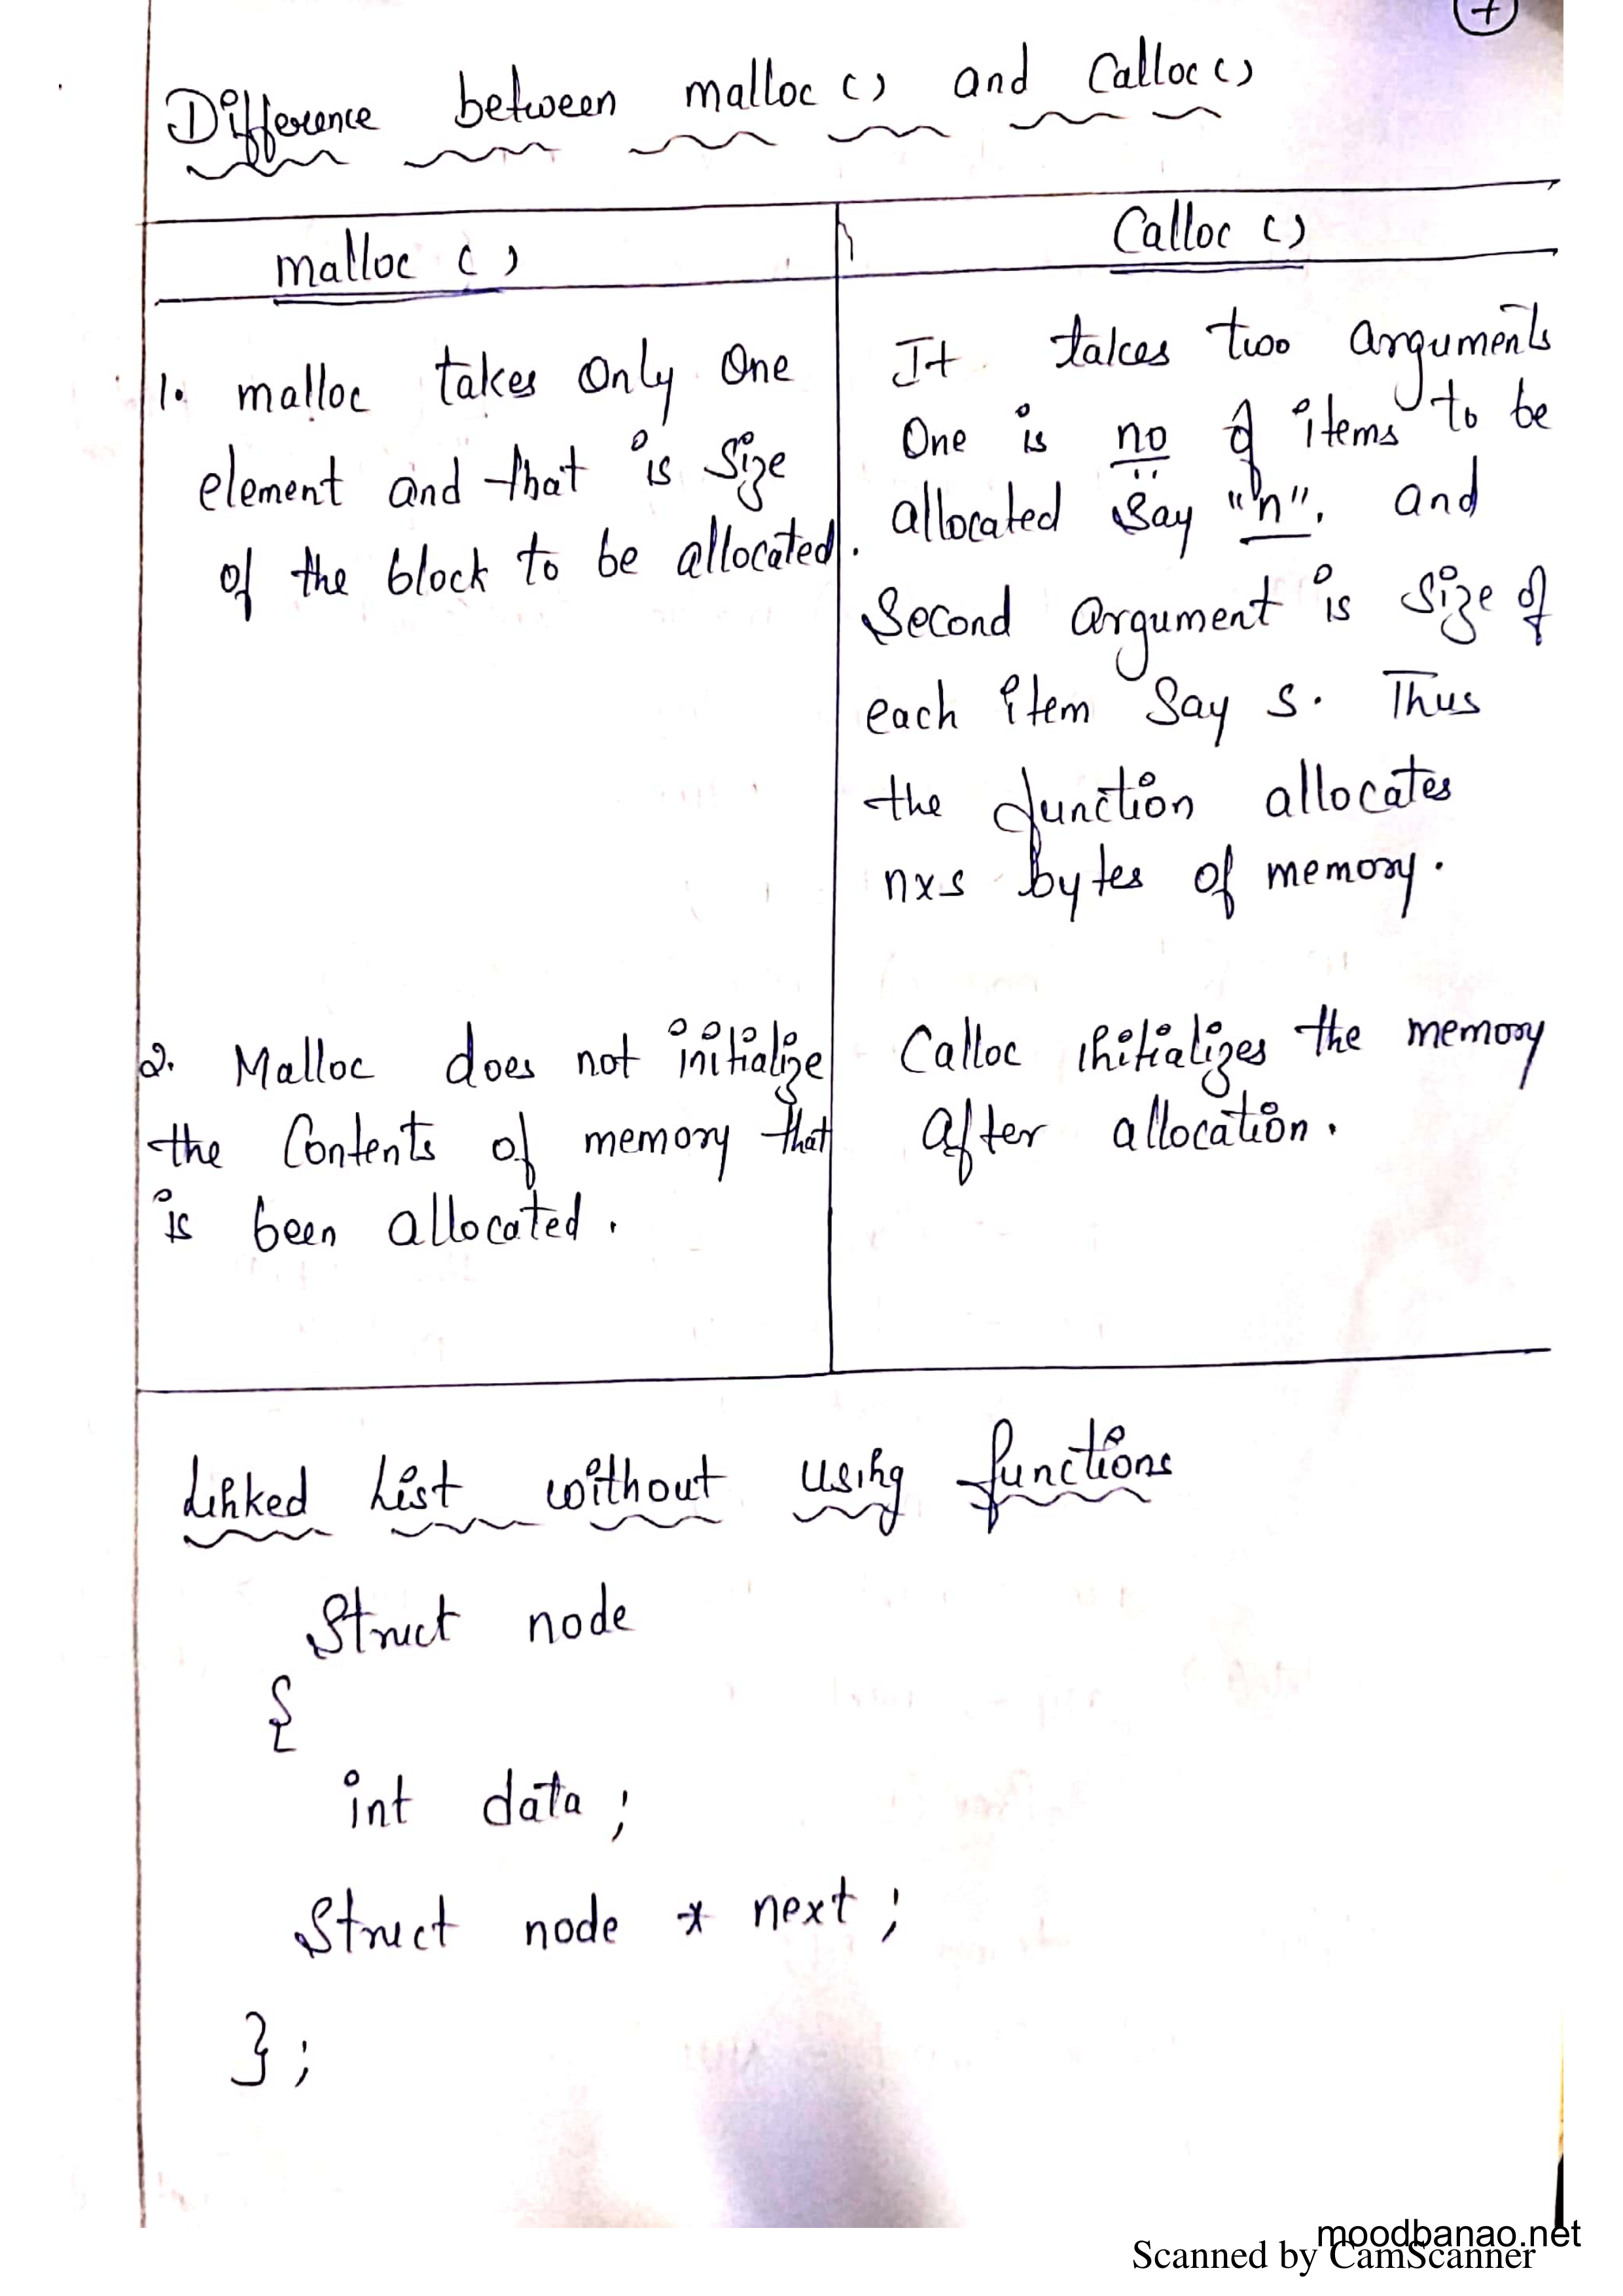 +
Difference between malloc () and Calloc ()
malloc ()
Calloc ()
1. malloc takes Only One
element and that is Size
of the block to be allocated.
It takes two arguments
One is no of items to be
allocated say "n". and
Second argument is Size of
each item Say s. Thus
the function allocates
nxs bytes of memory.
2. Malloc does not initialize
the Contents of memory that
is been allocated.
Calloc initializes the memory
After allocation.
Linked List without using functions
Struct node
{
int data ;
Struct node * next ;
} ;
moodbanao.net
Scanned by CamScanner